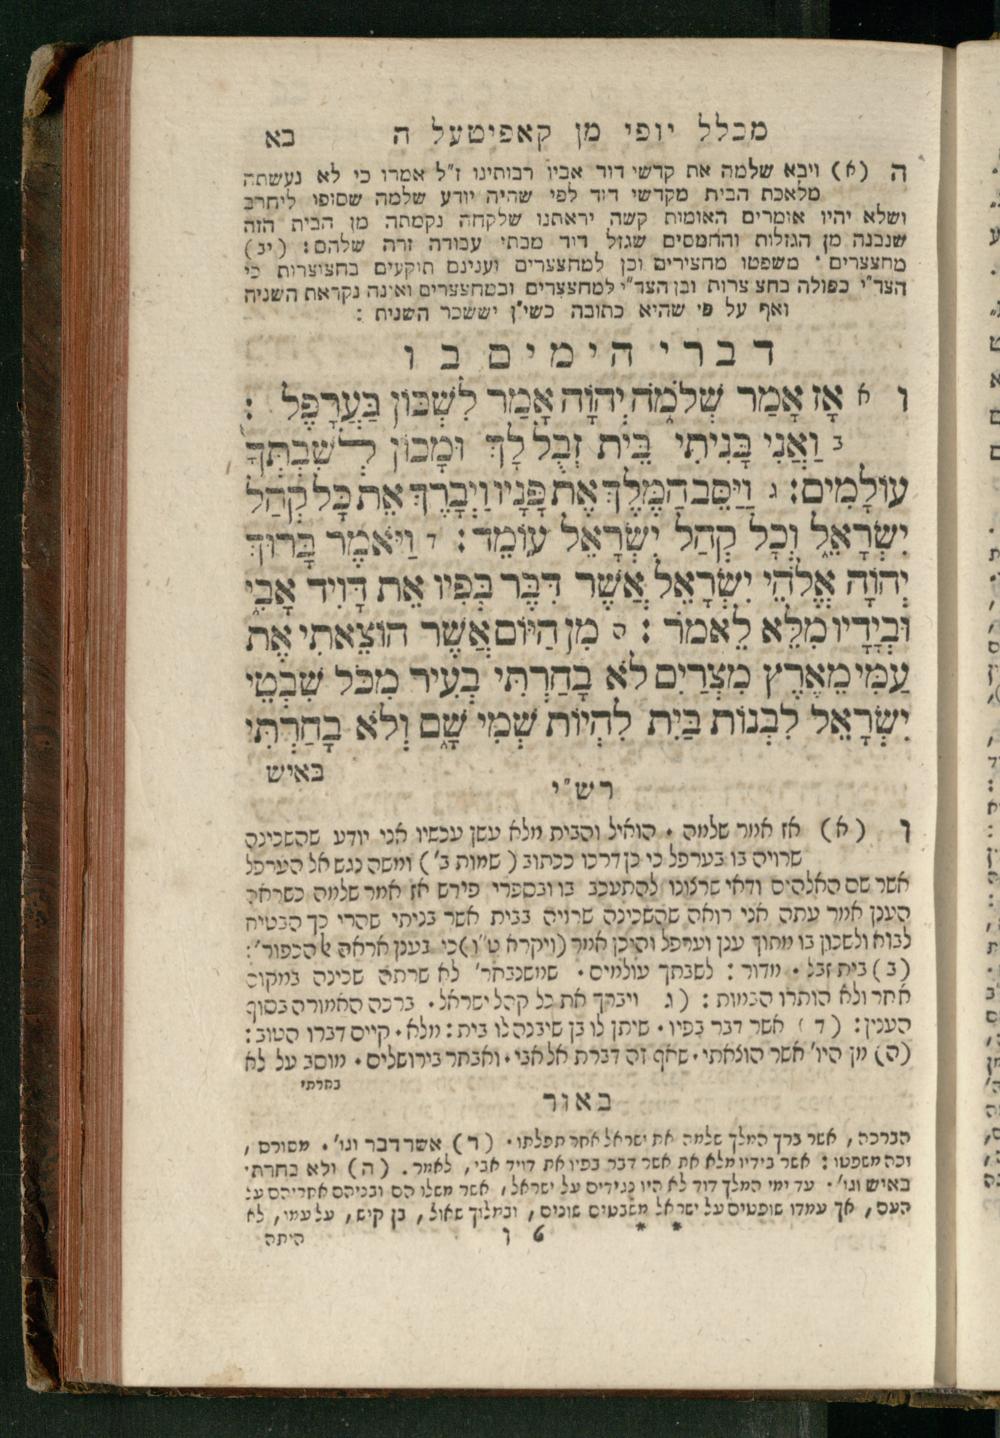 מכלל יופי מן קאפיטעל ה כא
ה (א) ויבא שלמה את קדשי דוד אביו רבותינו ז"ל אמרו כי לא נעשתה
מלאכת הבית מקדשי דוד לפי שהיה יודע שלמה שסופו ליחרב
ושלא יהיו אומרים האומות קשה יראתנו שלקחה נקמתה מן הבית הזה
שנבנה מן הגזלות והחמסים שגזל דוד מבתי עבודה זרה שלהם : (יב)
מחצצרים · משפטו מחצירים וכן למחצצרים וענינם תוקעים בחצוצרות כי
הצד"י כפולה בחצצרות וכן הצד"י למחצצרים ובמחצצרים ואינה נקראת השניה
ואף על פי שהיא כתובה כשי"ן יששכר השנית :
דברי הימים ב ו
ו א אָז אָמַר שְׁלֹמֹה יְהוָֹה אָמַר לִשְׁכּוֹן בָּעֲרָפֶל :
ב וַאֲנִי בָּנִיתִי בֵּית זְבֻל לָךְ וּמָכוֹן לְשִׁבְתְּךָ
עוֹלָמִים : ג וַיַּסֵּב הַמֶּלֶךְ אֶת פָּנָיו וַיְבָרֶךְ אֵת כָּל קְהַל
יִשְׂרָאֵל וְכָל קְהַל יִשְׂרָאֵל עוֹמֵד : ד וַיֹּאמֶר בָּרוּךְ
יְהוָֹה אֱלֹהֵי יִשְׂרָאֵל אֲשֶׁר דִּבֶּר בְּפִיו אֵת דָּוִיד אָבִי
וּבְיָדָיו מִלֵּא לֵאמֹר : ה מִן הַיּוֹם אֲשֶׁר הוֹצֵאתִי אֶת
עַמִּי מֵאֶרֶץ מִצְרַיִם לֹא בָחַרְתִּי בְעִיר מִכֹּל שִׁבְטֵי
יִשְׂרָאֵל לִבְנוֹת בַּיִת לִהְיוֹת שְׁמִי שָׁם וְלֹא בָחַרְתִּי
באיש
רש"י
ו (א) אז אמר שלמה · הואיל והבית מלא עשן עכשיו אני יודע שהשכינה
שרויה בו בערפל כי כן דרכו ככתוב ( שמות ב' ) ומשה נגש אל הערפל
אשר שם האלהים ודאי שרצונו להתעכב בו ובספרי פירש אז אמר שלמה כשראה
הענן אמר עתה אני רואה שהשכינה שרויה בבית אשר בניתי שהרי כך הבטיח
לבוא ולשכון בו מתוך ענן וערפל והיכן אמר (ויקרא ט"ו) כי בענן אראה על הכפור' :
(ב) בית זבל · מדור : לשבתך עולמים · שמשנבחר' לא שרתה שכינה במקום
אחר ולא הותרו הבמות : (ג ויברך את כל קהל ישראל · ברכה האמורה בסוף
הענין : (ד) אשר דבר בפיו · שיתן לו בן שיבנה לו בית : מלא · קיים דברו הטוב :
(ה) מן היו' אשר הוצאתי · שאף זה דברת אל אבי · ואבחר בירושלים · מוסב על לא
בחרתי
באור
הברכה , אשר ברך המלך שלמה את ישראל אחר תפלתו · (ד) אשר דבר וגו' · מסורס ,
וכה משפטו : אשר בידיו מלא את אשר דבר בפיו את דויד אבי , לאמר . (ה) ולא בחרת'
באיש וגו' · עד ימי המלך דוד לא היו נגידים על ישראל , אשר משלו הם ובניהם אחריהם על
העם , אך עמדו שופטים על ישראל משבטים שונים , ובמלוך שאול , בן קיש , על עמו , לא
* * 6 ו היתה